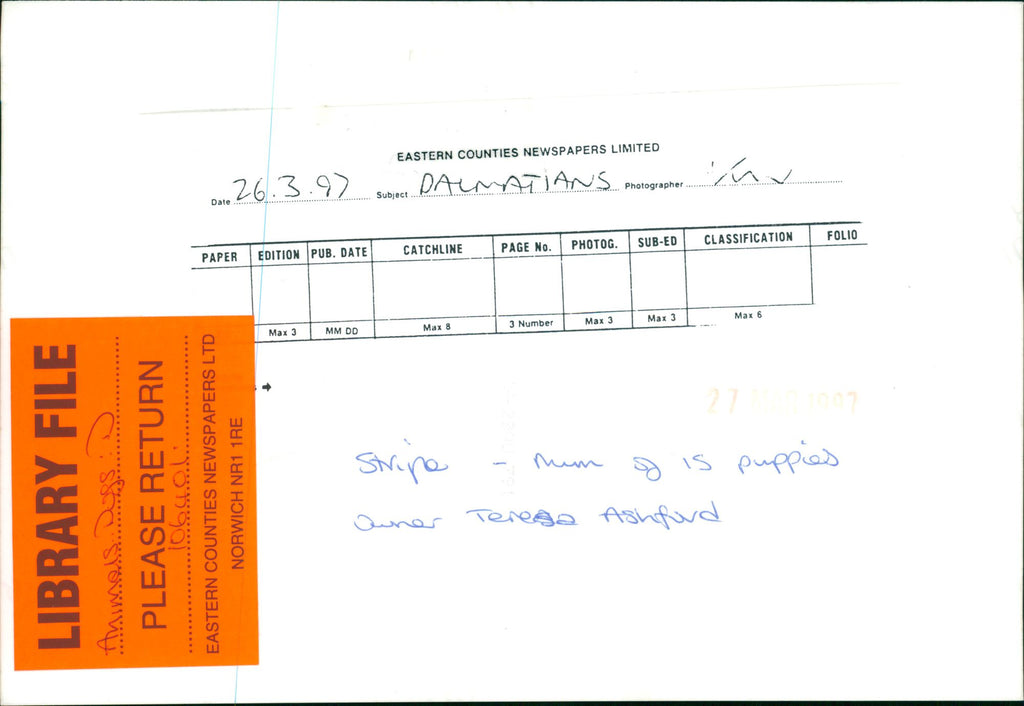 EASTERN COUNTIES NEWSPAPERS LIMITED
Date 26.3.97 Subject DALMATIANS Photographer
PAPER EDITION PUB. DATE CATCHLINE PAGE No. PHOTOG. SUB-ED CLASSIFICATION FOLIO
Max 3 MM DD Max 8 3 Number Max 3 Max 3 Max 6
27 MAR 1997
Stripe - Mum of 15 puppies
Owner Teresa Ashford
LIBRARY FILE
Animals: Dogs: D
PLEASE RETURN
EASTERN COUNTIES NEWSPAPERS LTD
NORWICH NR1 1RE